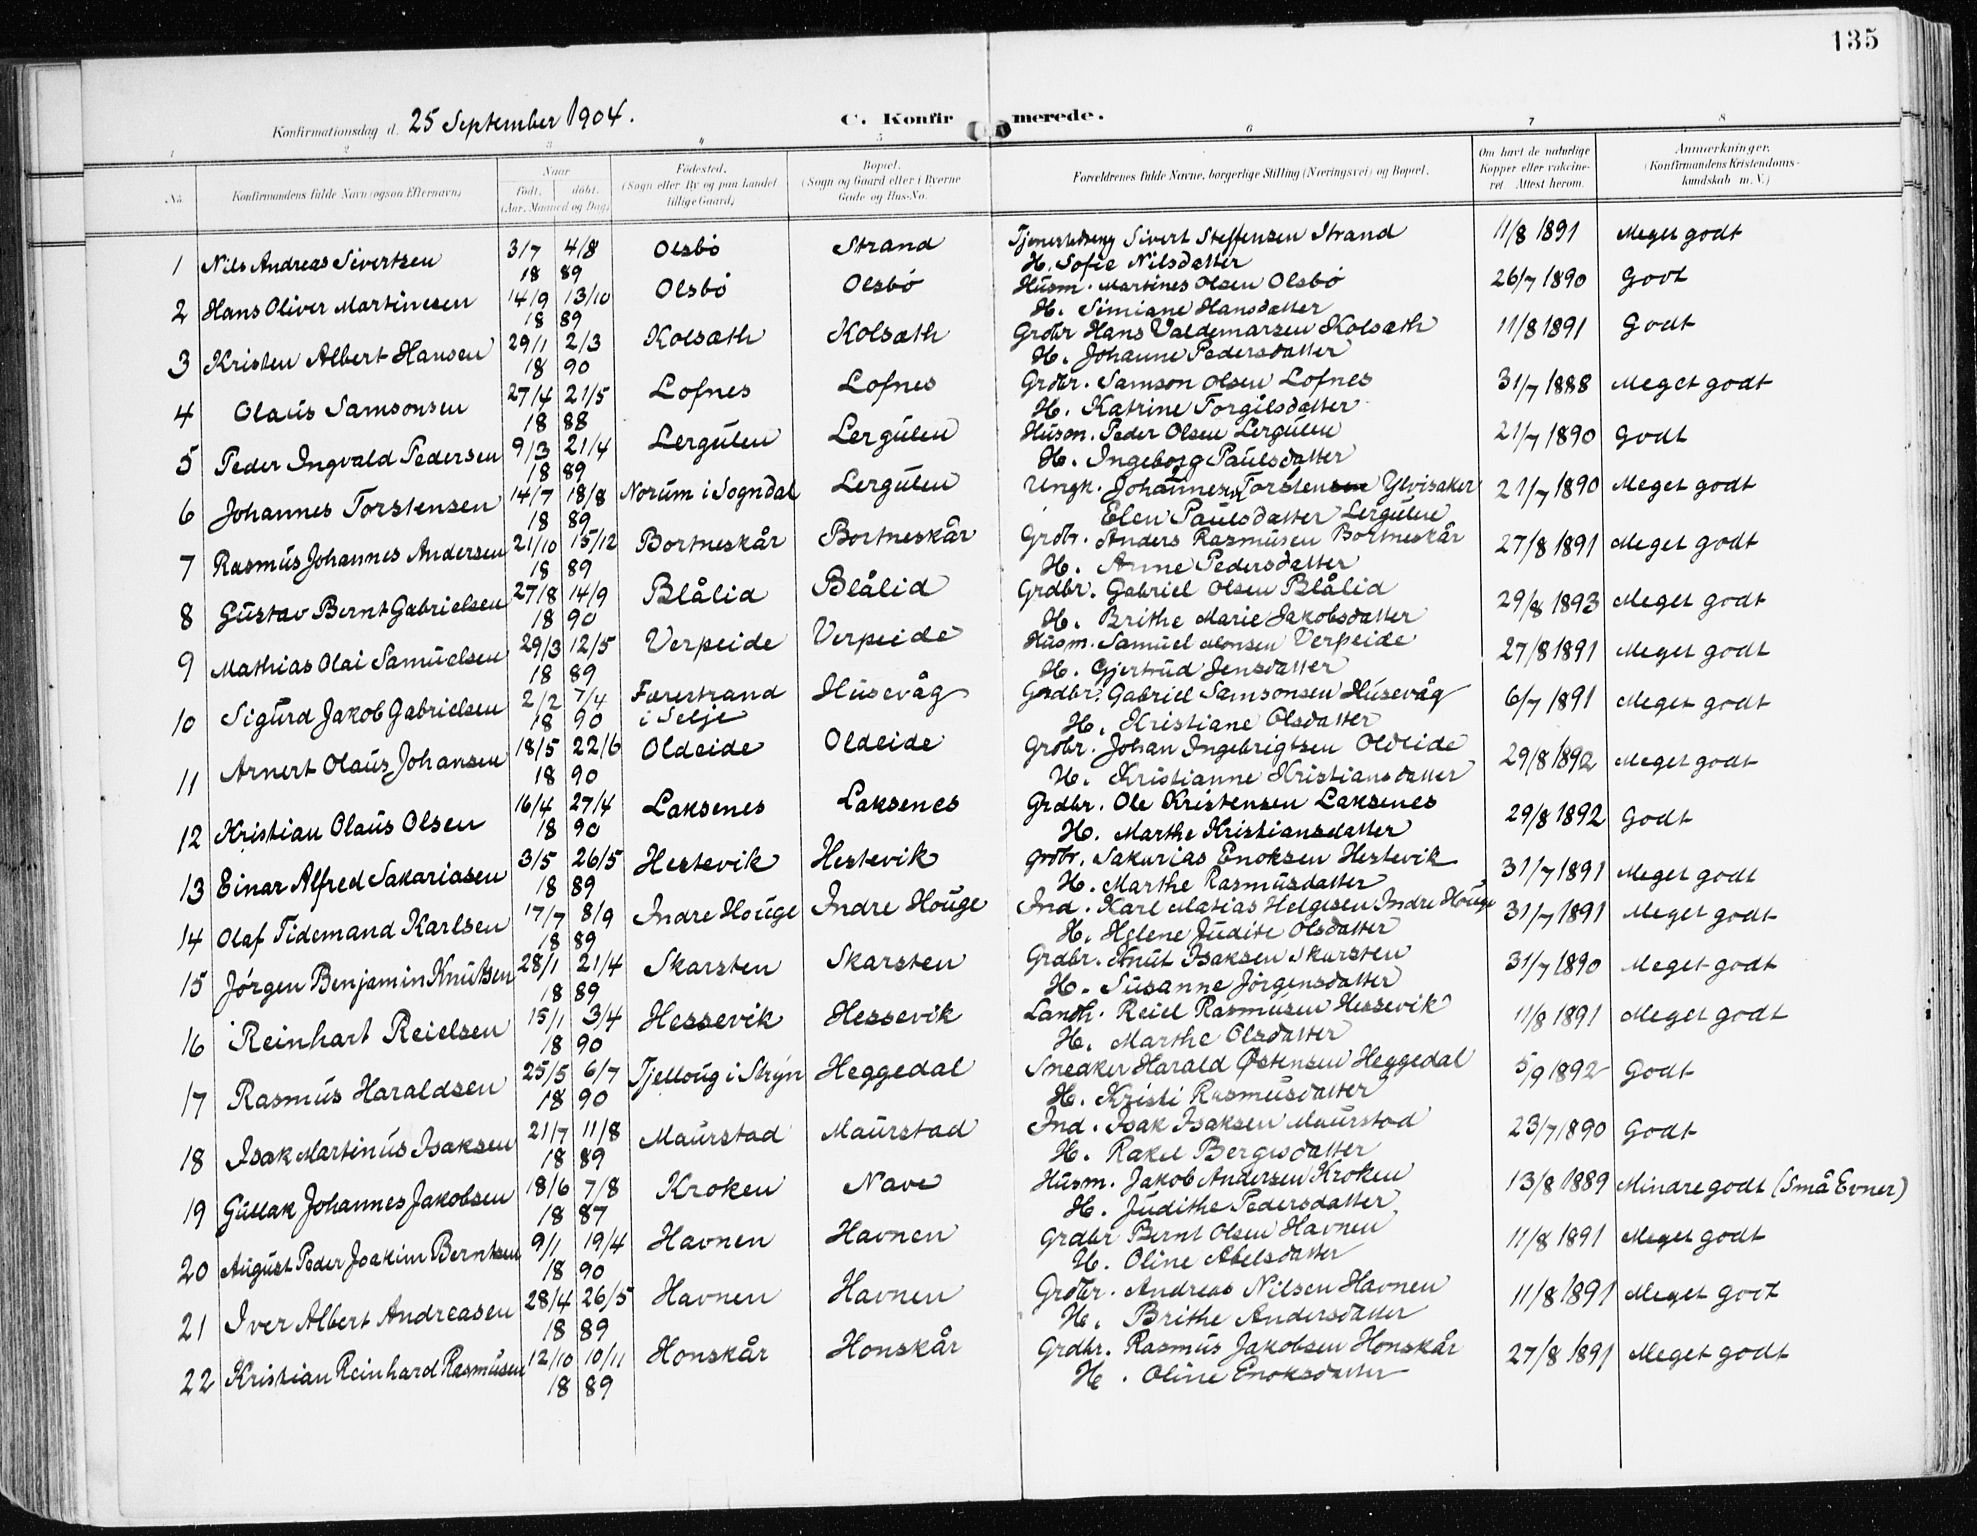 135
Konfirmationsdag d. 25 September 1904.
C. Konfirmerede.
1 2 3 4 5 6 7 8
No. Konfirmandens fulde Navn (ogsaa Efternavn) Naar født. døbt. (Aar, Maaned og Dag) Fødested. (Sogn eller By og paa Landet tillige Gaard) Bopæl. (Sogn og Gaard eller i Byerne Gade og Hus-No. Forældrenes fulde Navne, borgerlige Stilling (Næringsvei) og Bopæl. Om havt de naturlige Kopper eller vakcineret. Attest herom. Anmerkninger. (Konfirmandens Kristendomskundskab m. V.)
1 Nils Andreas Sivertsen 3/7 4/8 Olsbö Strand Sivert Steffensen Strand 11/8 1891 Meget godt
18 89 H. Sofie Nilsdatter
2 Hans Oliver Martinesen 14/9 13/10 Olsbö Olsbö Husm. Martines Olsen Olsbö 26/7 1890 Godt
18 89 H. Simiane Hansdatter
3 Kristen Albert Hansen 29/1 2/3 Kolsæth Kolsæth Grdbr Hans Valdemarsen Kolsæth 11/8 1891 Godt
18 90 H. Johanne Pedersdatter
4 Olaus Samsonsen 27/4 21/5 Lofnes Lofnes Grdbr. Samson Olsen Lofnes 31/7 1888 Meget godt
18 88 H. Katrine Torgilsdatter
5 Peder Ingvald Pedersen 9/3 21/4 Lergulen Lergulen Husm. Peder Olsen Lergulen 21/7 1890 Godt
18 89 H. Ingeborg Paulsdatter
6 Johannes Torstensen 14/7 18/8 Norum i Sogndal Lergulen Ungk. Johannes Torstensen Ylvisaker 21/7 1890 Meget godt
18 89 Elen Paulsdatter Lergulen
7 Rasmus Johannes Andersen 21/10 15/12 Bortneskår Bortneskår Grdbr. Anders Rasmusen Bortneskår 27/8 1891 Meget godt
18 89 H. Anne Pedersdatter
8 Gustav Bernt Gabrielsen 27/8 14/9 Blålid Blålid Grdbr. Gabriel Olsen Blålid 29/8 1893 Meget godt
18 90 H. Brithe Marie Jakobsdatter
9 Mathias Olai Samuelsen 29/3 12/5 Verpeide Verpeide Husm. Samuel Monsen Verpeide 27/8 1891 Meget godt
18 89 H. Gjertrud Jensdatter
10 Sigurd Jakob Gabrielsen 2/2 7/4 Færestrand i Selje Husevåg Grdbr. Gabriel Samsonsen Husevåg 6/7 1891 Meget godt
18 90 H. Kristiane Olsdatter
11 Arnert Olaus Johansen 18/5 22/6 Oldeide Oldeide Grdbr. Johan Ingebrigtsen Oldeide 29/8 1892 Meget godt
18 90 H. Kristianne Kristiansdatter
12 Kristian Olaus Olsen 16/4 27/4 Laksenes Laksenes Grdbr. Ole Kristensen Laksenes 29/8 1892 Godt
18 90 H. Marthe Kristiansdatter
13 Einar Alfred Sakariasen 3/5 26/5 Hestevik Hestevik Grdbr. Sakarias Enoksen Hestevik 31/7 1891 Meget godt
18 89 H. Marthe Rasmusdatter
14 Olaf Tidemand Karlsen 17/7 8/9 Indre Houge Indre Houge Ind. Karl Matias Helgesen Indre Houge 31/7 1891 Meget godt
18 89 H. Helene Judite Olsdatter
15 Jörgen Benjamin Knutsen 28/1 21/4 Skarsten Skarsten Grdbr. Knut Isaksen Skarsten 31/7 1890 Meget godt
18 89 H. Susanne Jörgensdatter
16 Reinhart Reielsen 15/1 3/4 Hessevik Hessevik Landh. Reiel Rasmusen Hessevik 11/8 1891 Meget godt
18 90 H. Marthe Olsdatter
17 Rasmus Haraldsen 25/5 6/7 Tjelloug i Stryn Heggedal Snedker Harald Østensen Heggedal 5/9 1892 Godt
18 90 H. Kristi Rasmusdatter
18 Isak Martinus Isaksen 21/7 11/8 Maurstad Maurstad Ind. Isak Isaksen Maurstad 23/7 1890 Godt
18 89 H. Rakel Bergesdatter
19 Gullak Johannes Jakobsen 18/6 7/8 Kroken Nave Husm. Jakob Andersen Kroken 13/8 1889 Mindre godt (Små Evner)
18 87 H. Judithe Pedersdatter
20 August Peder Joakim Berntsen 9/1 19/4 Havnen Havnen Grdbr Bernt Olsen Havnen 11/8 1891 Meget godt
18 90 H. Oline Abelsdatter
21 Iver Albert Andreasen 28/4 26/5 Havnen Havnen Grdbr. Andreas Nilsen Havnen 11/8 1891 Meget godt
18 89 H. Brithe Andersdatter
22 Kristian Reinhard Rasmusen 12/10 10/11 Honskår Honskår Grdbr. Rasmus Jakobsen Honskår 27/8 1891 Meget godt
18 89 H. Oline Enoksdatter